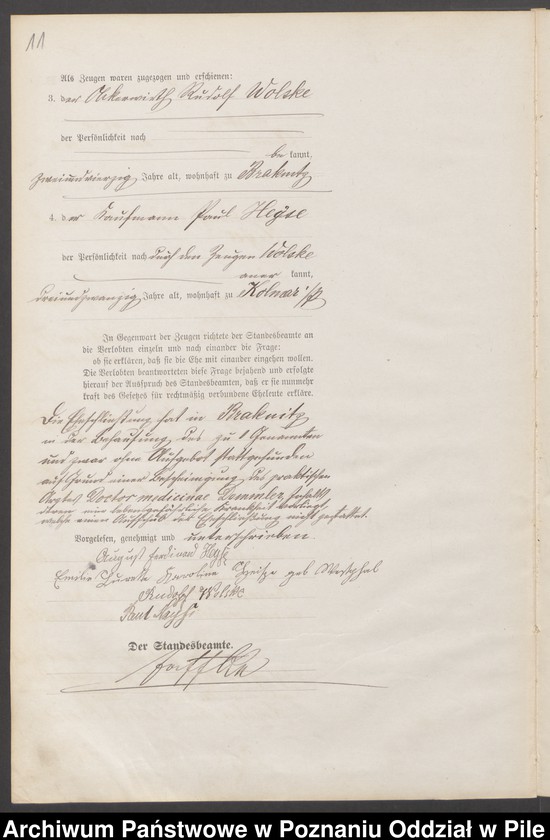 11
Als Zeugen waren zugezogen und erschienen:
3. der Ackerwirth Rudolf Wolske
der Persönlichkeit nach
be kannt,
zweiundvierzig Jahre alt, wohnhaft zu Braknitz
4. der Kaufmann Paul Heyse
der Persönlichkeit nach durch den Zeugen Wolske
aner kannt,
dreiundzwanzig Jahre alt, wohnhaft zu Kolmar i/P
In Gegenwart der Zeugen richtete der Standesbeamte an
die Verlobten einzeln und nach einander die Frage:
ob sie erklären, daß sie die Ehe mit einander eingehen wollen.
Die Verlobten beantworteten diese Frage bejahend und erfolgte
hierauf der Ausspruch des Standesbeamten, daß er sie nunmehr
kraft des Gesetzes für rechtmäßig verbundene Eheleute erkläre.
Die Eheschließung hat in Braknitz
in der Behausung des zu 1 Genannten
und zwar ohne Aufgebot stattgefunden
auf Grund einer Bescheinigung des praktischen
Arztes Doctor medicinae
eine lebensgefährliche Krankheit
welche einen Aufschub der Eheschließung nicht gestattet.
Vorgelesen, genehmigt und unterschrieben
August Ferdinand Heyse
Emilie Karoline geb Westphal
Rudolf Wolske
Paul Heyse
Der Standesbeamte.
Archiwum Państwowe w Poznaniu Oddział w Pile